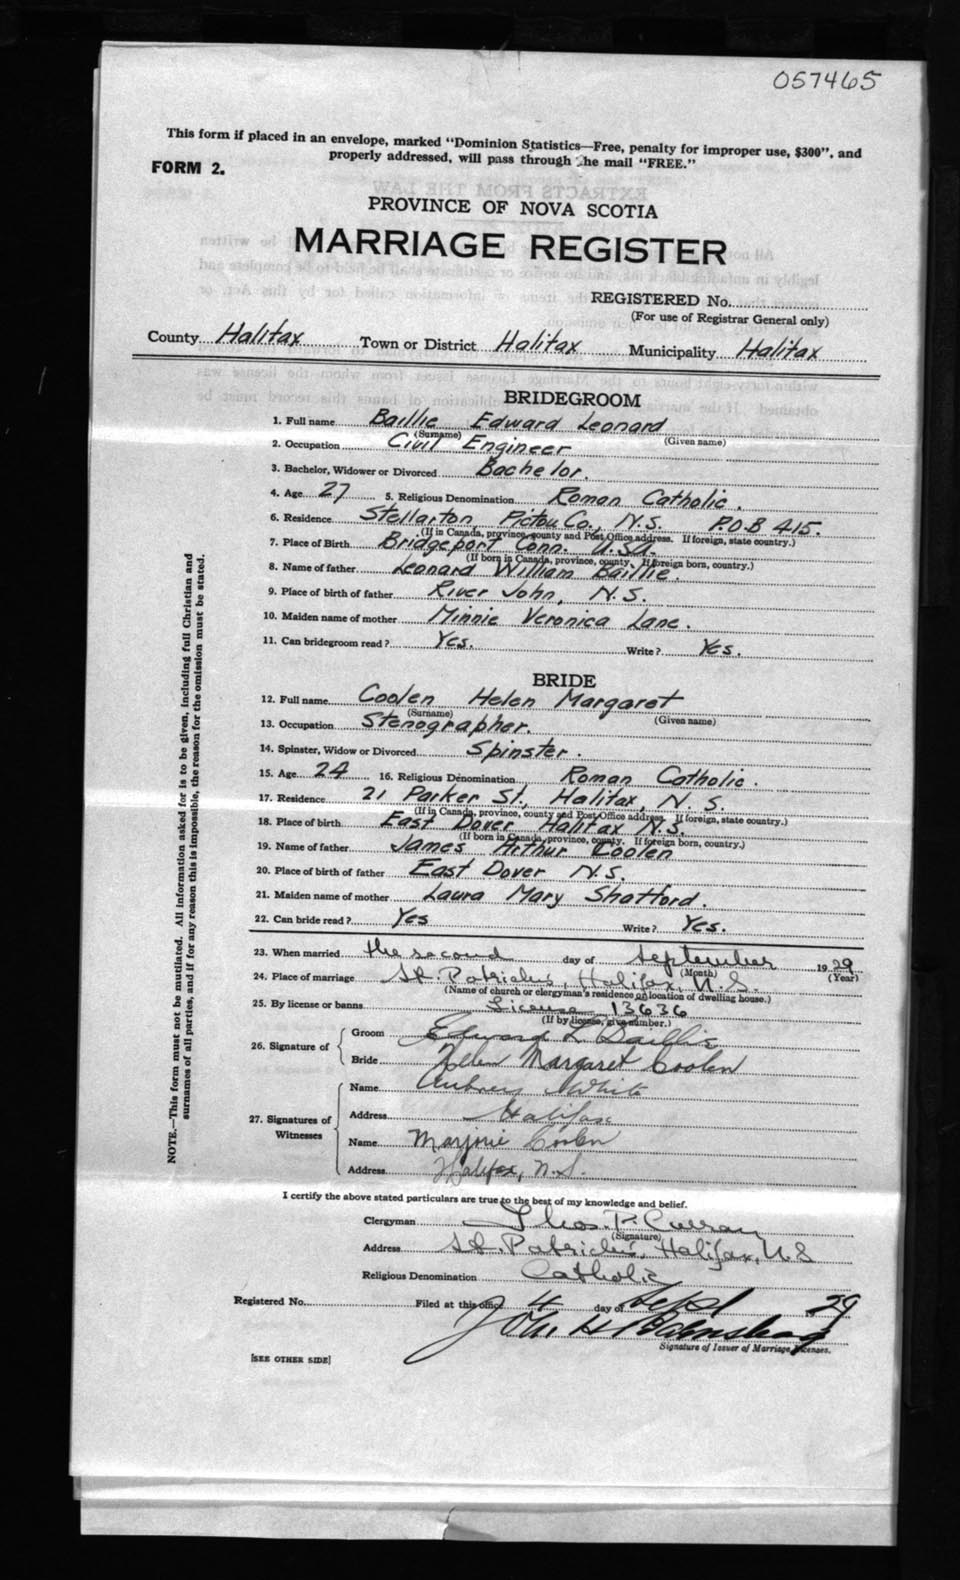 057465
This form if placed in an envelope, marked "Dominion Statistics—Free, penalty for improper use, $300", and
properly addressed, will pass through the mail "FREE."
FORM 2.
PROVINCE OF NOVA SCOTIA
MARRIAGE REGISTER
REGISTERED No.
(For use of Registrar General only)
County Halifax Town or District Halifax Municipality Halifax
BRIDEGROOM
1. Full name Baillie Edward Leonard
(Surname) (Given name)
2. Occupation Civil Engineer
3. Bachelor, Widower or Divorced Bachelor.
4. Age 27 5. Religious Denomination Roman Catholic.
6. Residence Stellarton, Pictou Co., N.S. P.O.B 415.
(If in Canada, province, county and Post Office address. If foreign, state country.)
7. Place of Birth Bridgeport Conn. U.S.A.
(If born in Canada, province, county. If foreign born, country.)
8. Name of father Leonard William Baillie.
9. Place of birth of father River John, N.S.
10. Maiden name of mother Minnie Veronica Lane.
11. Can bridegroom read? Yes. Write? Yes.
BRIDE
12. Full name Coolen Helen Margaret
(Surname) (Given name)
13. Occupation Stenographer.
14. Spinster, Widow or Divorced Spinster.
15. Age 24 16. Religious Denomination Roman Catholic.
17. Residence 21 Parker St., Halifax, N.S.
(If in Canada, province, county and Post Office address. If foreign, state country.)
18. Place of birth East Dover Halifax N.S.
(If born in Canada, province, county. If foreign born, country.)
19. Name of father James Arthur Coolen
20. Place of birth of father East Dover N.S.
21. Maiden name of mother Laura Mary Shatford.
22. Can bride read? Yes Write? Yes.
23. When married the second day of September 1929
(Month) (Year)
24. Place of marriage St. Patrick's, Halifax, N.S.
(Name of church or clergyman's residence or location of dwelling house.)
25. By license or banns License 13636
(If by license, give number.)
26. Signature of Groom Edward L Baillie
Bride Helen Margaret Coolen
27. Signatures of Witnesses
Name Aubrey White
Address Halifax
Name Marjorie Coolen
Address Halifax, N.S.
I certify the above stated particulars are true to the best of my knowledge and belief.
Clergyman Thos. P. Curran
(Signature)
Address St. Patrick's, Halifax, N.S
Religious Denomination Catholic
Registered No. Filed at this office 4 day of Sept 29
John H
Signature of Issuer of Marriage Licenses.
[SEE OTHER SIDE]
NOTE.—This form must not be mutilated. All information asked for is to be given, including full Christian and
surnames of all parties, and if for any reason this is impossible, the reason for the omission must be stated.